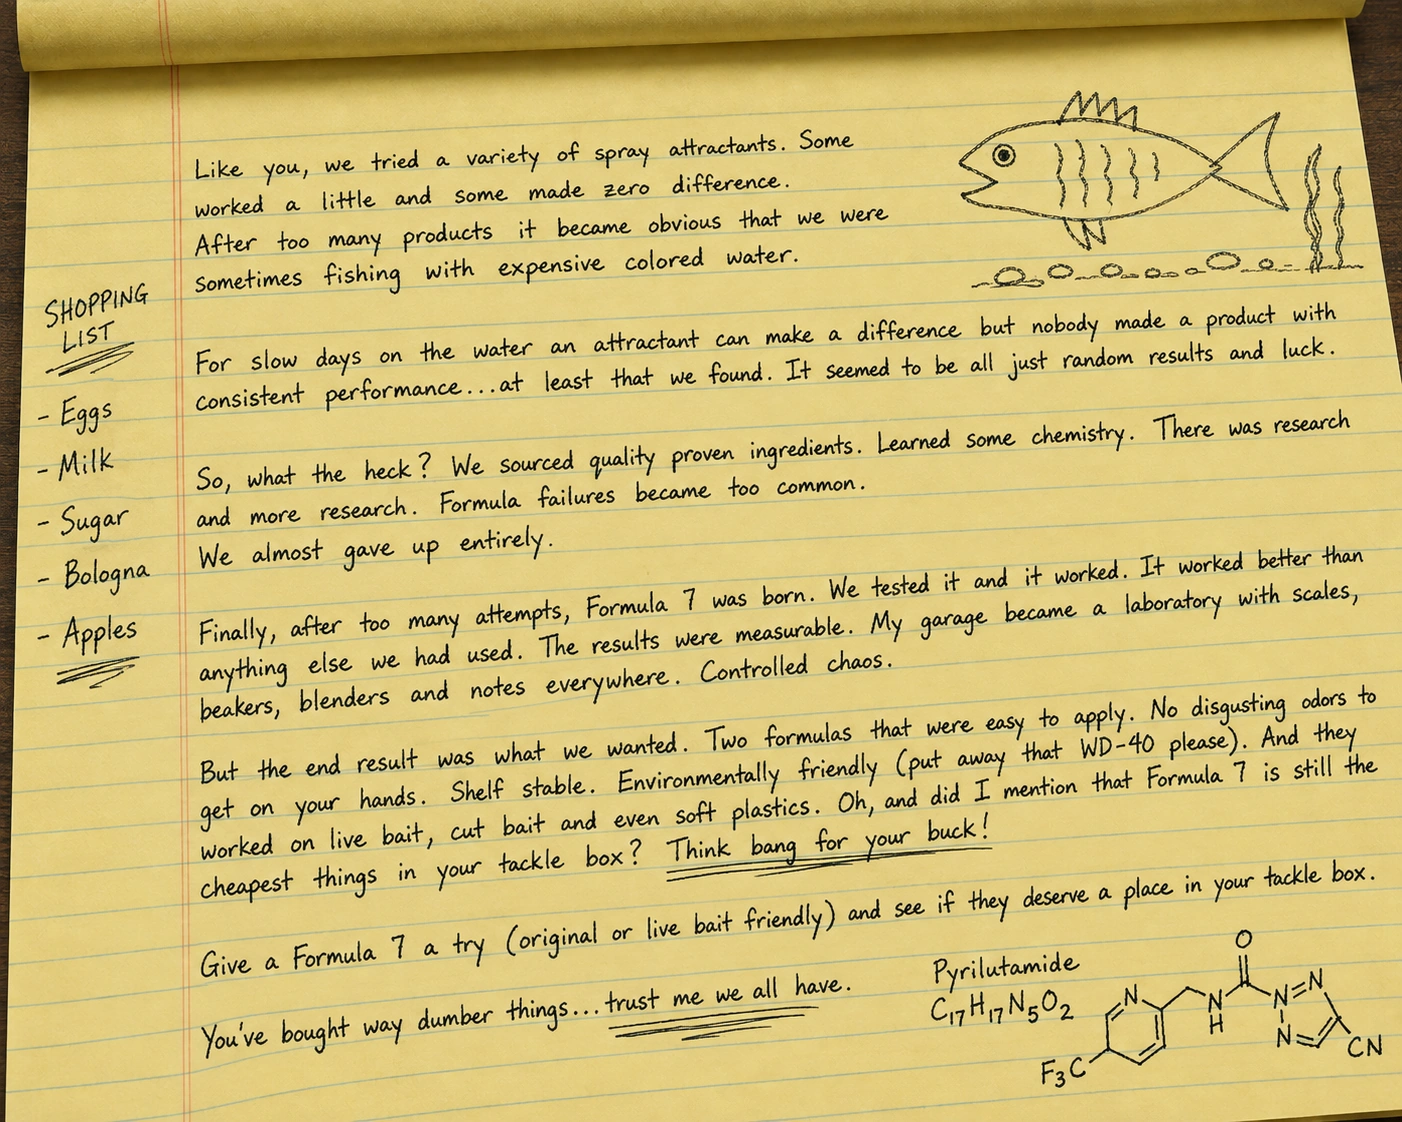 Like you, we tried a variety of spray attractants. Some
worked a little and some made zero difference.
After too many products it became obvious that we were
sometimes fishing with expensive colored water.
SHOPPING
LIST
- Eggs
- Milk
- Sugar
- Bologna
- Apples
For slow days on the water an attractant can make a difference but nobody made a product with
consistent performance...at least that we found. It seemed to be all just random results and luck.
So, what the heck? We sourced quality proven ingredients. Learned some chemistry. There was research
and more research. Formula failures became too common.
We almost gave up entirely.
Finally, after too many attempts, Formula 7 was born. We tested it and it worked. It worked better than
anything else we had used. The results were measurable. My garage became a laboratory with scales,
beakers, blenders and notes everywhere. Controlled chaos.
But the end result was what we wanted. Two formulas that were easy to apply. No disgusting odors to
get on your hands. Shelf stable. Environmentally friendly (put away that WD-40 please). And they
worked on live bait, cut bait and even soft plastics. Oh, and did I mention that Formula 7 is still the
cheapest things in your tackle box? Think bang for your buck!
Give a Formula 7 a try (original or live bait friendly) and see if they deserve a place in your tackle box.
You've bought way dumber things...trust me we all have.
Pyrilutamide
C₁₇H₁₇N₅O₂
O
N
N
H
N=N
N
CN
F₃C